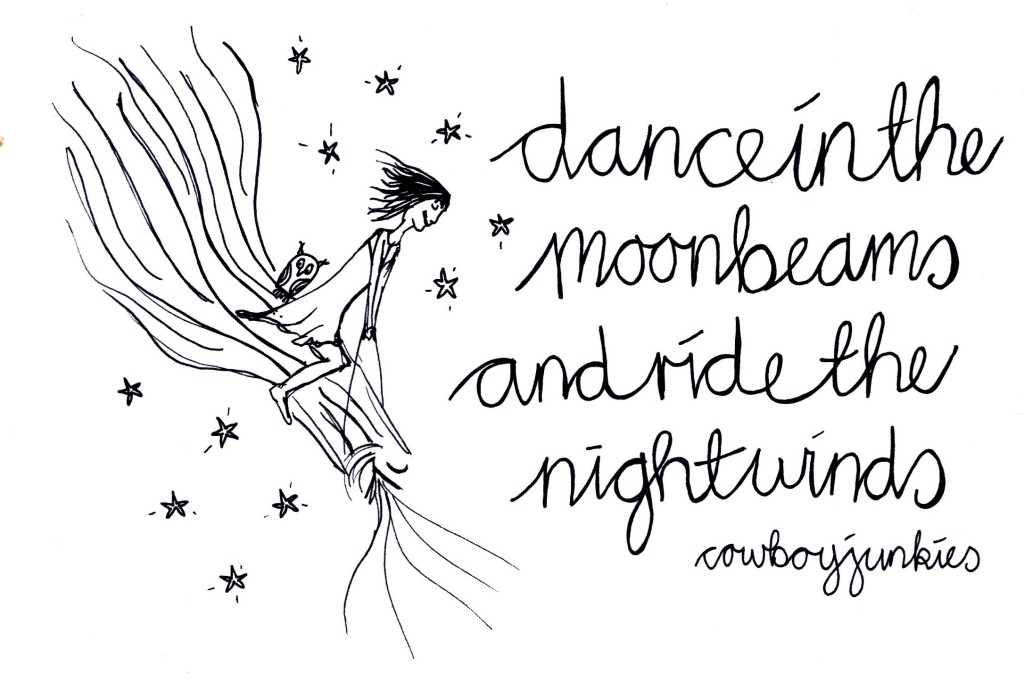 dance in the
moonbeams
and ride the
nightwinds
cowboy junkies